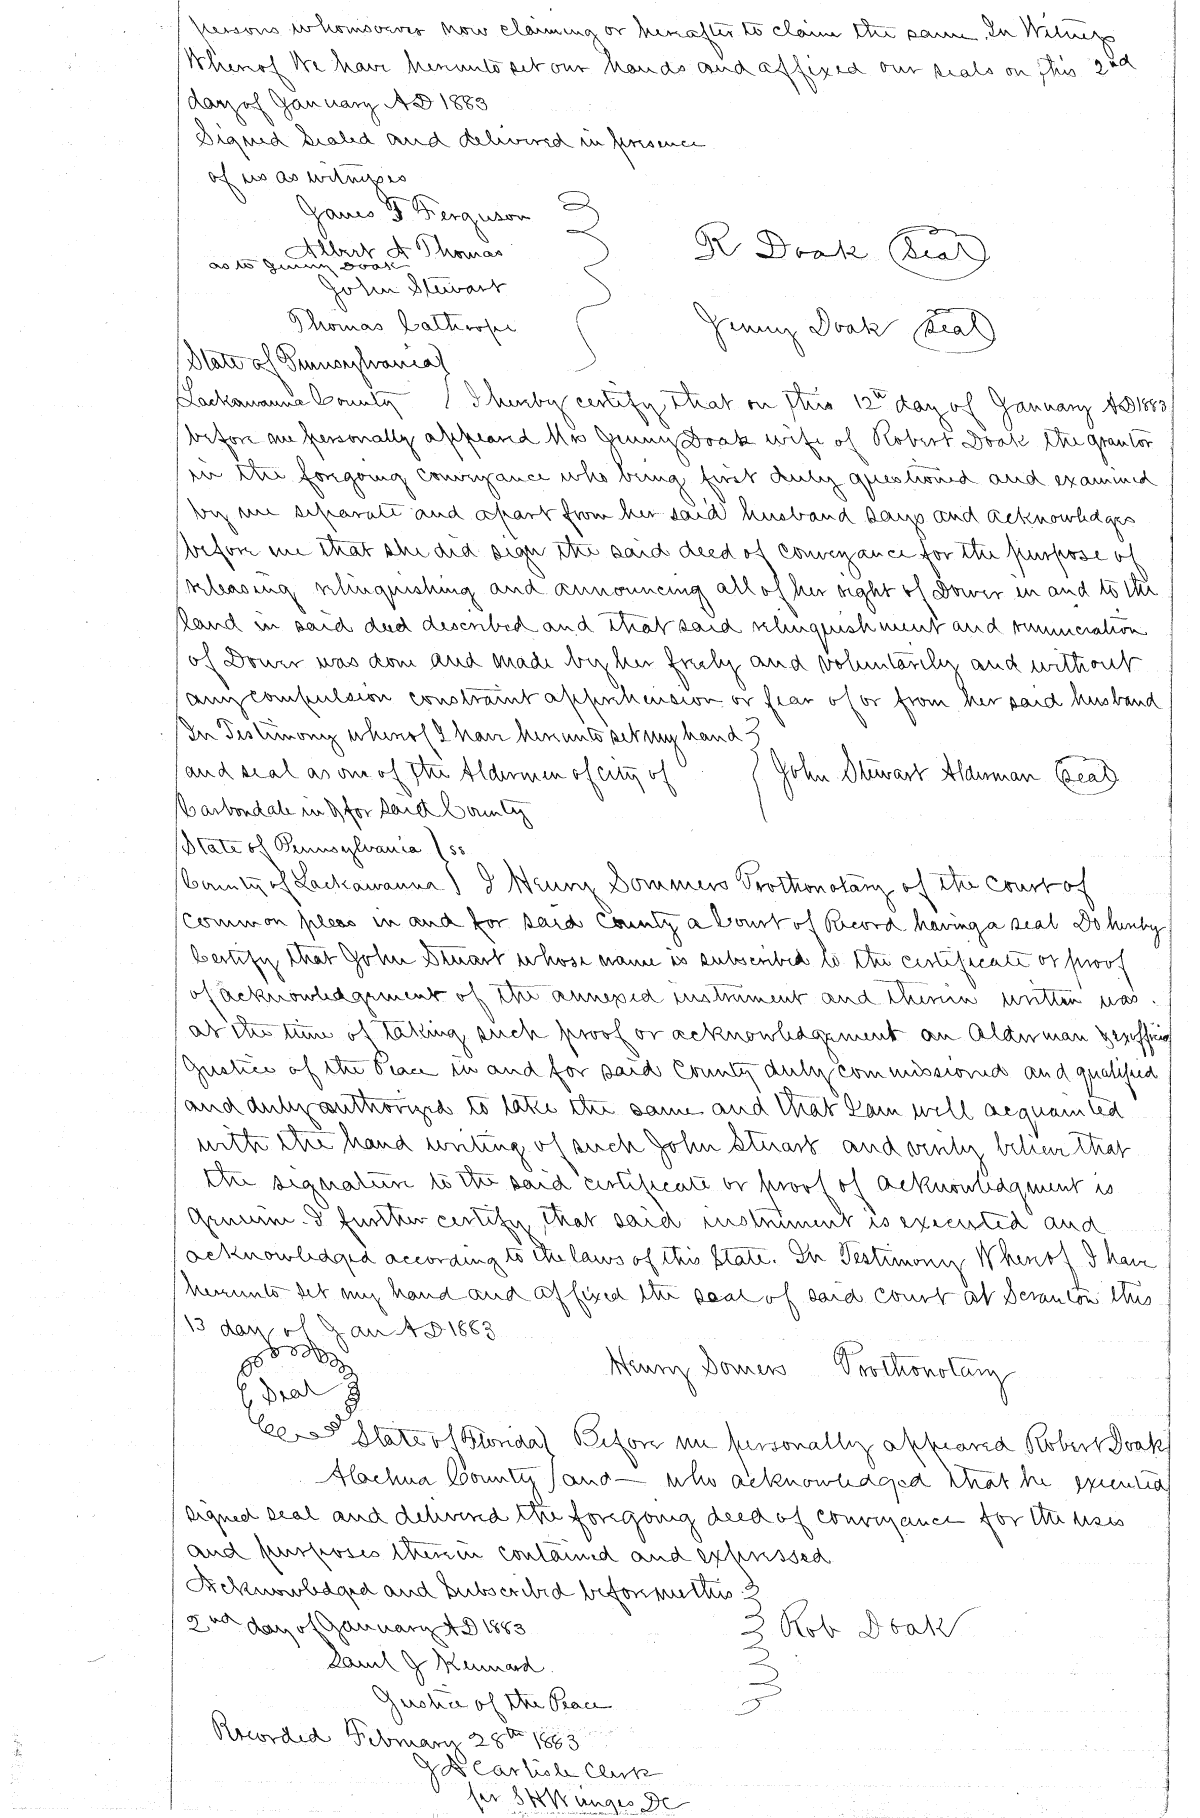 persons whomsoever now claiming or hereafter to claim the same. In Witness
Whereof We have hereunto set our hands and affixed our seals on this 2nd
day of January AD 1883
Signed Sealed and delivered in presence
of us as witnesses
James F Ferguson
Albert A Thomas
R Doak (Seal)
as to Jenny Doak
John Stewart
Thomas Calthorpe
Jenny Doak (Seal)
State of Pennsylvania)
Lackawanna County ( I hereby certify that on this 12th day of January AD 1883
before me personally appeared Mrs Jenny Doak wife of Robert Doak the grantor
in the foregoing conveyance who being first duly questioned and examined
by me separate and apart from her said husband says and acknowledges
before me that she did sign the said deed of conveyance for the purpose of
releasing relinquishing and announcing all of her right of Dower in and to the
land in said deed described and that said relinquishment and renunciation
of Dower was done and made by her freely and voluntarily and without
any compulsion constraint apprehension or fear of or from her said husband
In Testimony whereof I have hereunto set my hand
and seal as one of the Aldermen of city of
John Stewart Alderman (Seal)
Carbondale in & for said County
State of Pennsylvania ) ss
County of Lackawanna ) I Henry Sommers Prothonotary of the Court of
Common pleas in and for said County a Court of Record having a seal Do hereby
Certify that John Stuart whose name is subscribed to the certificate or proof
of acknowledgement of the annexed instrument and therein written was
at the time of taking such proof or acknowledgement an Alderman & exofficio
Justice of the Peace in and for said County duly commissioned and qualified
and duly authorized to take the same and that I am well acquainted
with the hand writing of such John Stuart and verily believe that
the signature to the said certificate or proof of acknowledgment is
genuine. I further certify that said instrument is executed and
acknowledged according to the laws of this State. In Testimony Whereof I have
hereunto set my hand and affixed the seal of said court at Scranton this
13 day of Jan AD 1883
Henry Somers Prothonotary
Seal
State of Florida) Before me personally appeared Robert Doak
Alachua County ) and — who acknowledged that he executed
signed seal and delivered the foregoing deed of conveyance for the uses
and purposes therein contained and expressed
Acknowledged and Subscribed before me this
2nd day of January AD 1883
Rob Doak
Saml J Kennard
Justice of the Peace
Recorded February 28th 1883
J A Carlisle Clerk
per DC